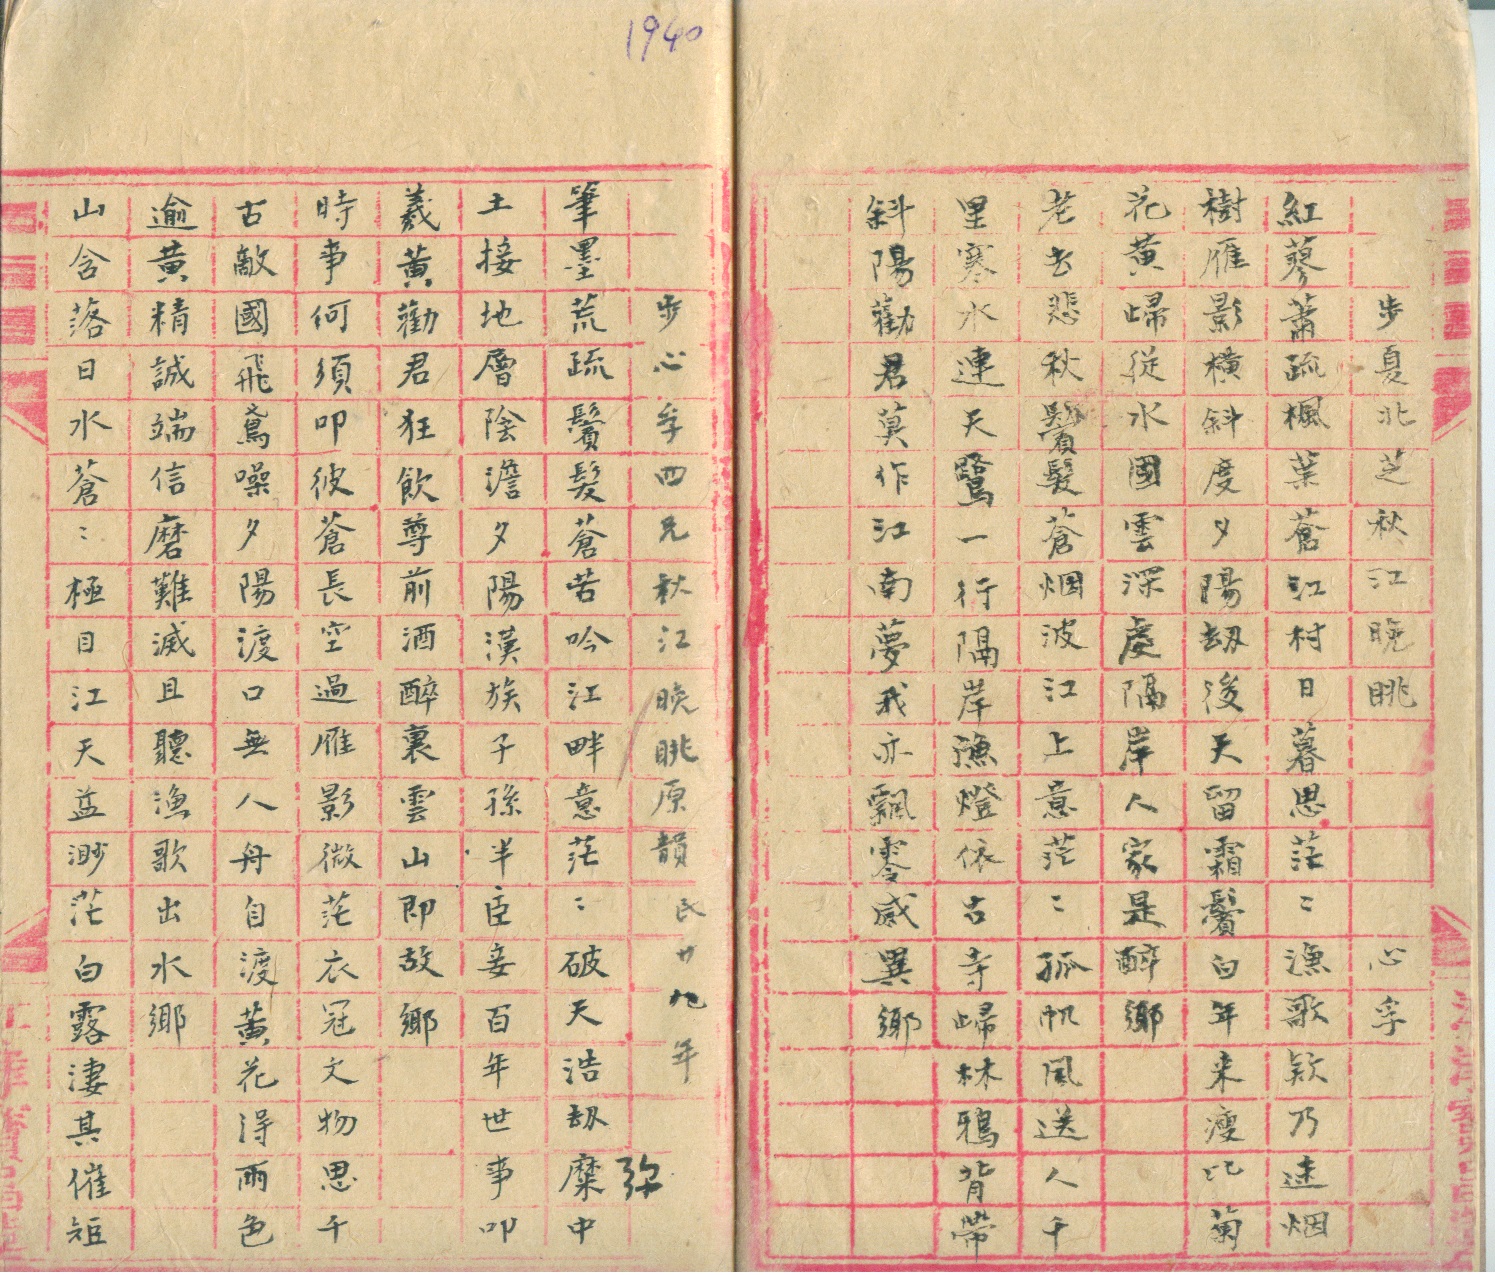 1940
步夏北芝秋江晚眺 心孚
紅蓼蕭疏楓葉蒼江村日暮思茫〻漁歌欵乃迷烟
樹雁影橫斜度夕陽劫後天留霜鬢白年来瘦比菊
花黃歸從水國雲深處隔岸人家是醉鄉
老去悲秋鬢髮蒼烟波江上意茫〻孤帆風送人千
里寒水連天鷺一行隔岸漁燈依古寺歸林鴉背帶
斜陽勸君莫作江南夢我亦飄零感異鄉
步心孚四兄秋江晚眺原韻民廿九年
筆墨荒疏鬢髮蒼苦吟江畔意茫〻破天浩劫糜中
弥
土接地層陰澹夕陽漢族子孫半臣妾百年世事叩
羲黃勸君狂飲尊前酒醉裏雲山即故鄉
時事何須叩彼蒼長空過雁影微茫衣冠文物思千
古敵國飛鳶噪夕陽渡口無人舟自渡黃花淂雨色
逾黃精誠端信磨難滅且聽漁歌出水鄉
山含落日水蒼〻極目江天益渺茫白露淒其催短